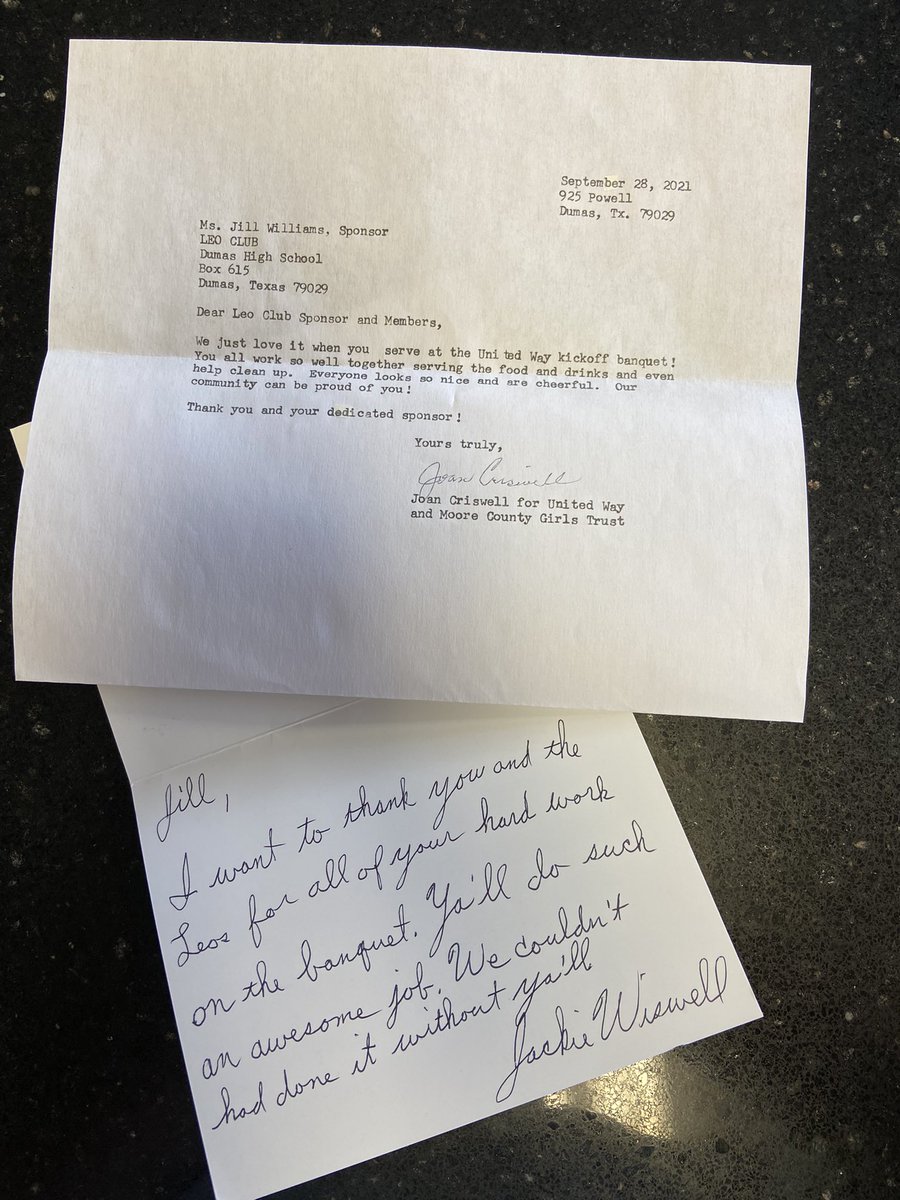 September 28, 2021
925 Powell
Dumas, Tx. 79029
Ms. Jill Williams, Sponsor
LEO CLUB
Dumas High School
Box 615
Dumas, Texas 79029
Dear Leo Club Sponsor and Members,
We just love it when you  serve at the United Way kickoff banquet!
You all work so well together serving the food and drinks and even
help clean up.  Everyone looks so nice and are cheerful.  Our
community can be proud of you!
Thank you and your dedicated sponsor!
Yours truly,
Joan Criswell
Joan Criswell for United Way
and Moore County Girls Trust
Jill,
I want to thank you and the
Leos for all of your hard work
on the banquet. Ya'll do such
an awesome job. We couldn't
had done it without ya'll.
Jackie Wiswell